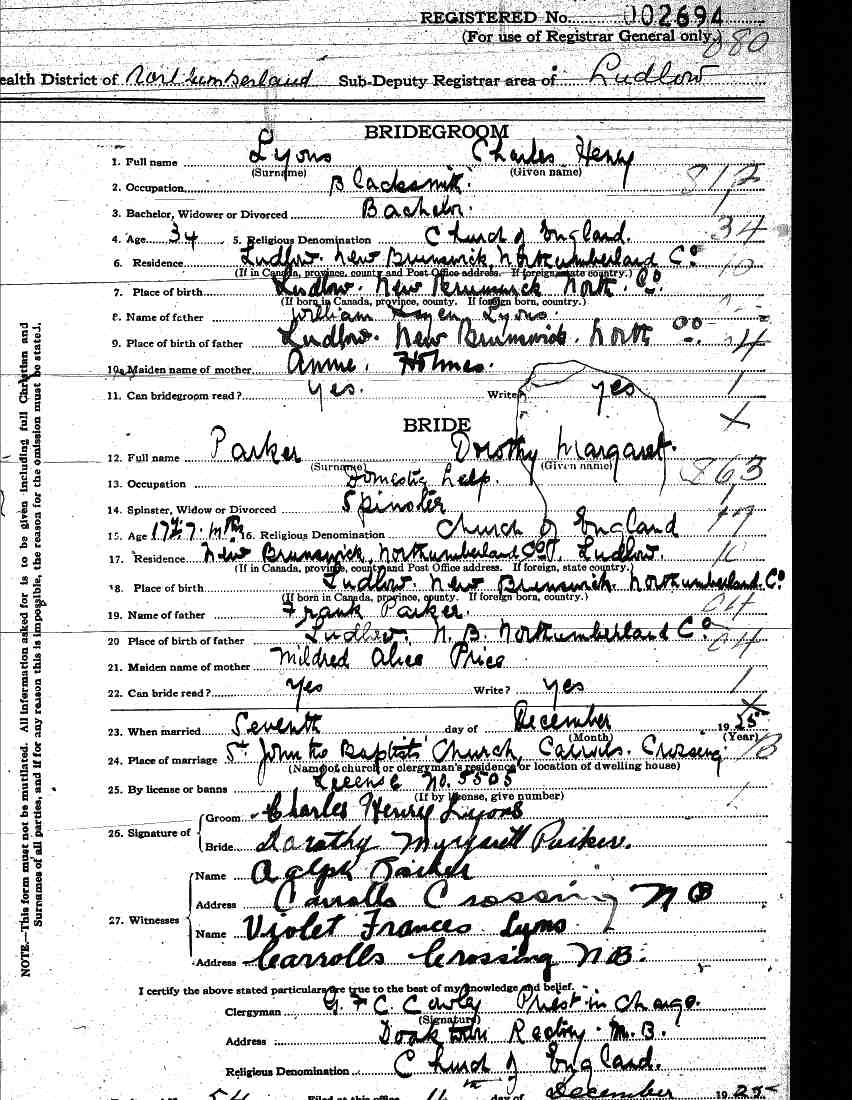 REGISTERED No. 002694
(For use of Registrar General only.) 080
ealth District of Northumberland Sub-Deputy Registrar area of Ludlow
BRIDEGROOM
1. Full name Lyons Charles Henry
(Surname) (Given name)
2. Occupation Blacksmith. 817
3. Bachelor, Widower or Divorced Bachelor. 1
4. Age 34 5. Religious Denomination Church of England. 34
6. Residence Ludlow. New Brunswick, Northumberland Co. 10
(If in Canada, province, county and Post Office address. If foreign, state country.)
7. Place of birth Ludlow. New Brunswick North. Co.
(If born in Canada, province, county. If foreign born, country.)
8. Name of father William Lyons.
9. Place of birth of father Ludlow. New Brunswick. North Co. 4
10. Maiden name of mother Annie. Holmes.
11. Can bridegroom read? Yes. Write? yes 1
X
BRIDE
12. Full name Parker Dorothy Margaret.
(Surname) (Given name)
13. Occupation Domestic help. 863
14. Spinster, Widow or Divorced Spinster 1
15. Age 17 16. Religious Denomination Church of England 17
17. Residence New Brunswick, Northumberland Co. Ludlow. 10
(If in Canada, province, county and Post Office address. If foreign, state country.)
18. Place of birth Ludlow. New Brunswick. Northumberland. Co.
(If born in Canada, province, county. If foreign born, country.)
19. Name of father Frank Parker. 04
20 Place of birth of father Ludlow. N. B. Northumberland Co. 04
21. Maiden name of mother Mildred Alice Price
22. Can bride read? yes Write? yes 1
X
23. When married Seventh day of December 1925
(Month) (Year)
24. Place of marriage St. John the Baptists' Church, Carrols. Crossing.
(Name of church or clergyman's residence or location of dwelling house)
25. By license or banns License No. 5505
(If by license, give number)
26. Signature of
Groom Charles Henry Lyons
Bride Darathy Parker.
27. Witnesses
Name Parker
Address Carrolls Crossing N B
Name Violet Frances Lyons
Address Carrolls Crossing N B.
I certify the above stated particulars are true to the best of my knowledge and belief.
Clergyman G. F C. Cowley Priest in Charge.
(Signature)
Address Doaktown Rectory. N. B.
Religious Denomination Church of England.
Filed at this office day of December 1925
NOTE.—This form must not be mutilated. All information asked for is to be given including full Christian and
Surnames of all parties, and if for any reason this is impossible, the reason for the omission must be stated.